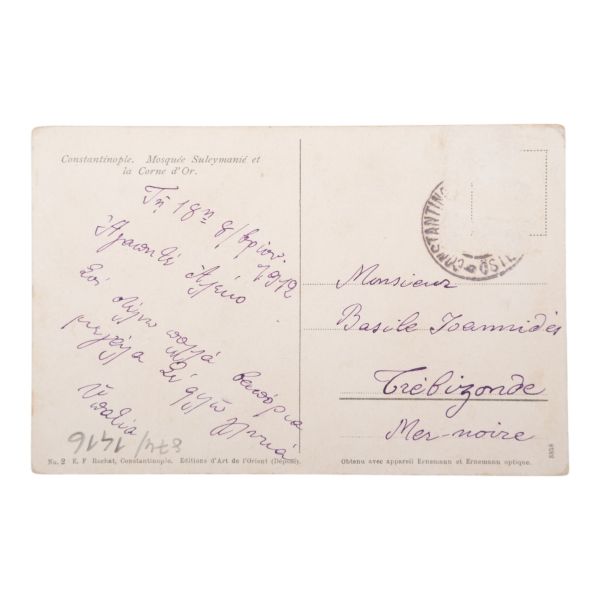 Constantinople. Mosquée Suleymanié et
la Corne d'Or.
Τῇ 18ῃ 8/βρίου
1912
Ἀγαπητὲ Ἀλέκο
Σοὶ στέλνω πολλὰ βαπόρια
μεγάλα Σὲ φιλῶ
Ὑπατία
874/1416
CONSTANTINO
Monsieur
Basile Joannidès
Trébizonde
Mer-noire
No. 2 E. F. Rochat, Constantinople. Editions d'Art de l'Orient (Déposé).
Obtenu avec appareil Ernemann et Ernemann optique.